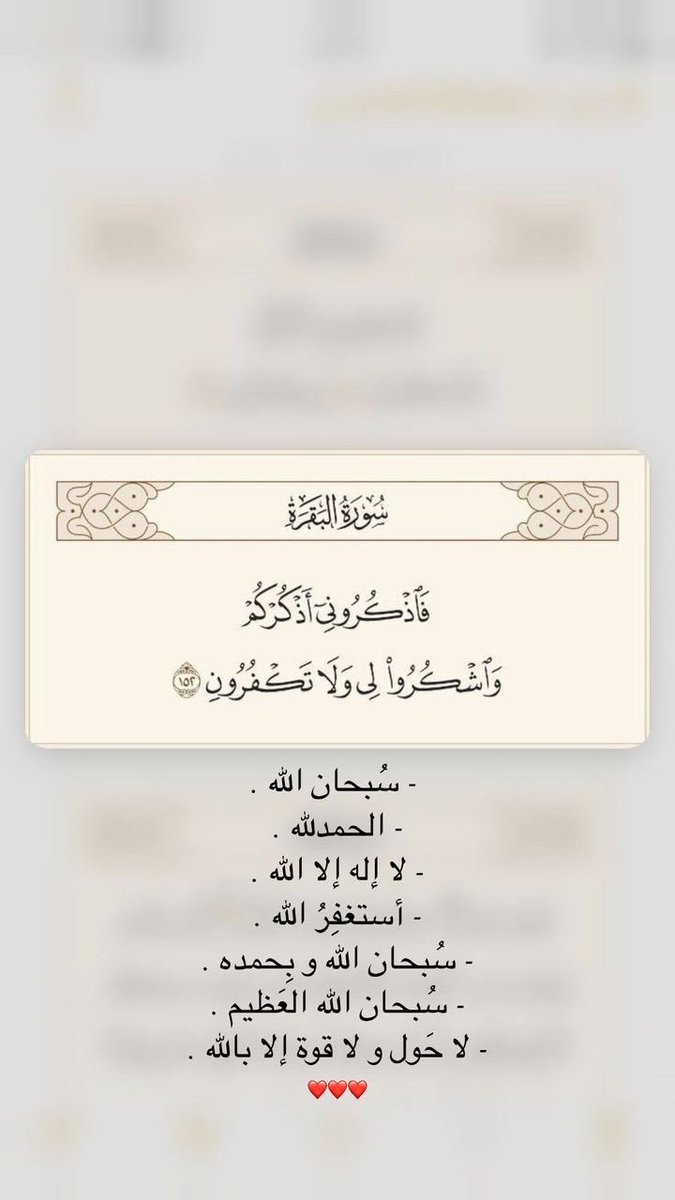 سُورَةُ البَقَرَةِ
فَٱذۡكُرُونِيٓ أَذۡكُرۡكُمۡ
وَٱشۡكُرُواْ لِي وَلَا تَكۡفُرُونِ ١٥٢
- سُبحان الله .
- الحمدلله .
- لا إله إلا الله .
- أستغفِرُ الله .
- سُبحان الله و بِحمده .
- سُبحان الله العَظيم .
- لا حَول و لا قوة إلا بالله .
♥️♥️♥️